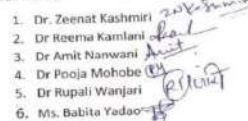 1. Dr. Zeenat Kashmiri
2. Dr Reema Kamlani
3. Dr Amit Nanwani Amit
4. Dr Pooja Mohobe
5. Dr Rupali Wanjari
6. Ms. Babita Yadao